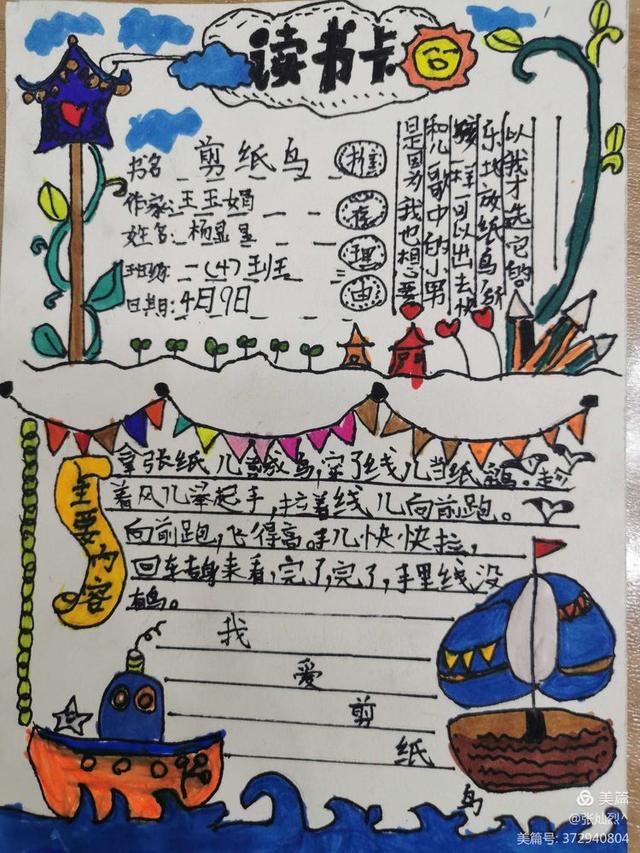 读书卡
书名 剪纸鸟
作家:王玉娟
姓名:杨显
班级:一(4)班
日期:4月9日
推荐理由=
是因为我也想要
和儿歌中的小男
孩一样可以出去快
乐地放纸鸟所
以我才选它的
主要内容
拿张纸儿 成鸟,穿了线儿当纸 。
着风儿举起手,拉着线儿向前跑。
向前跑,飞得高。手儿快快拉,
回 来看,完了,完了,手里线没
有鸟。
我
爱
剪
纸
鸟
美篇
@张灿烈^
美篇号: 372940804